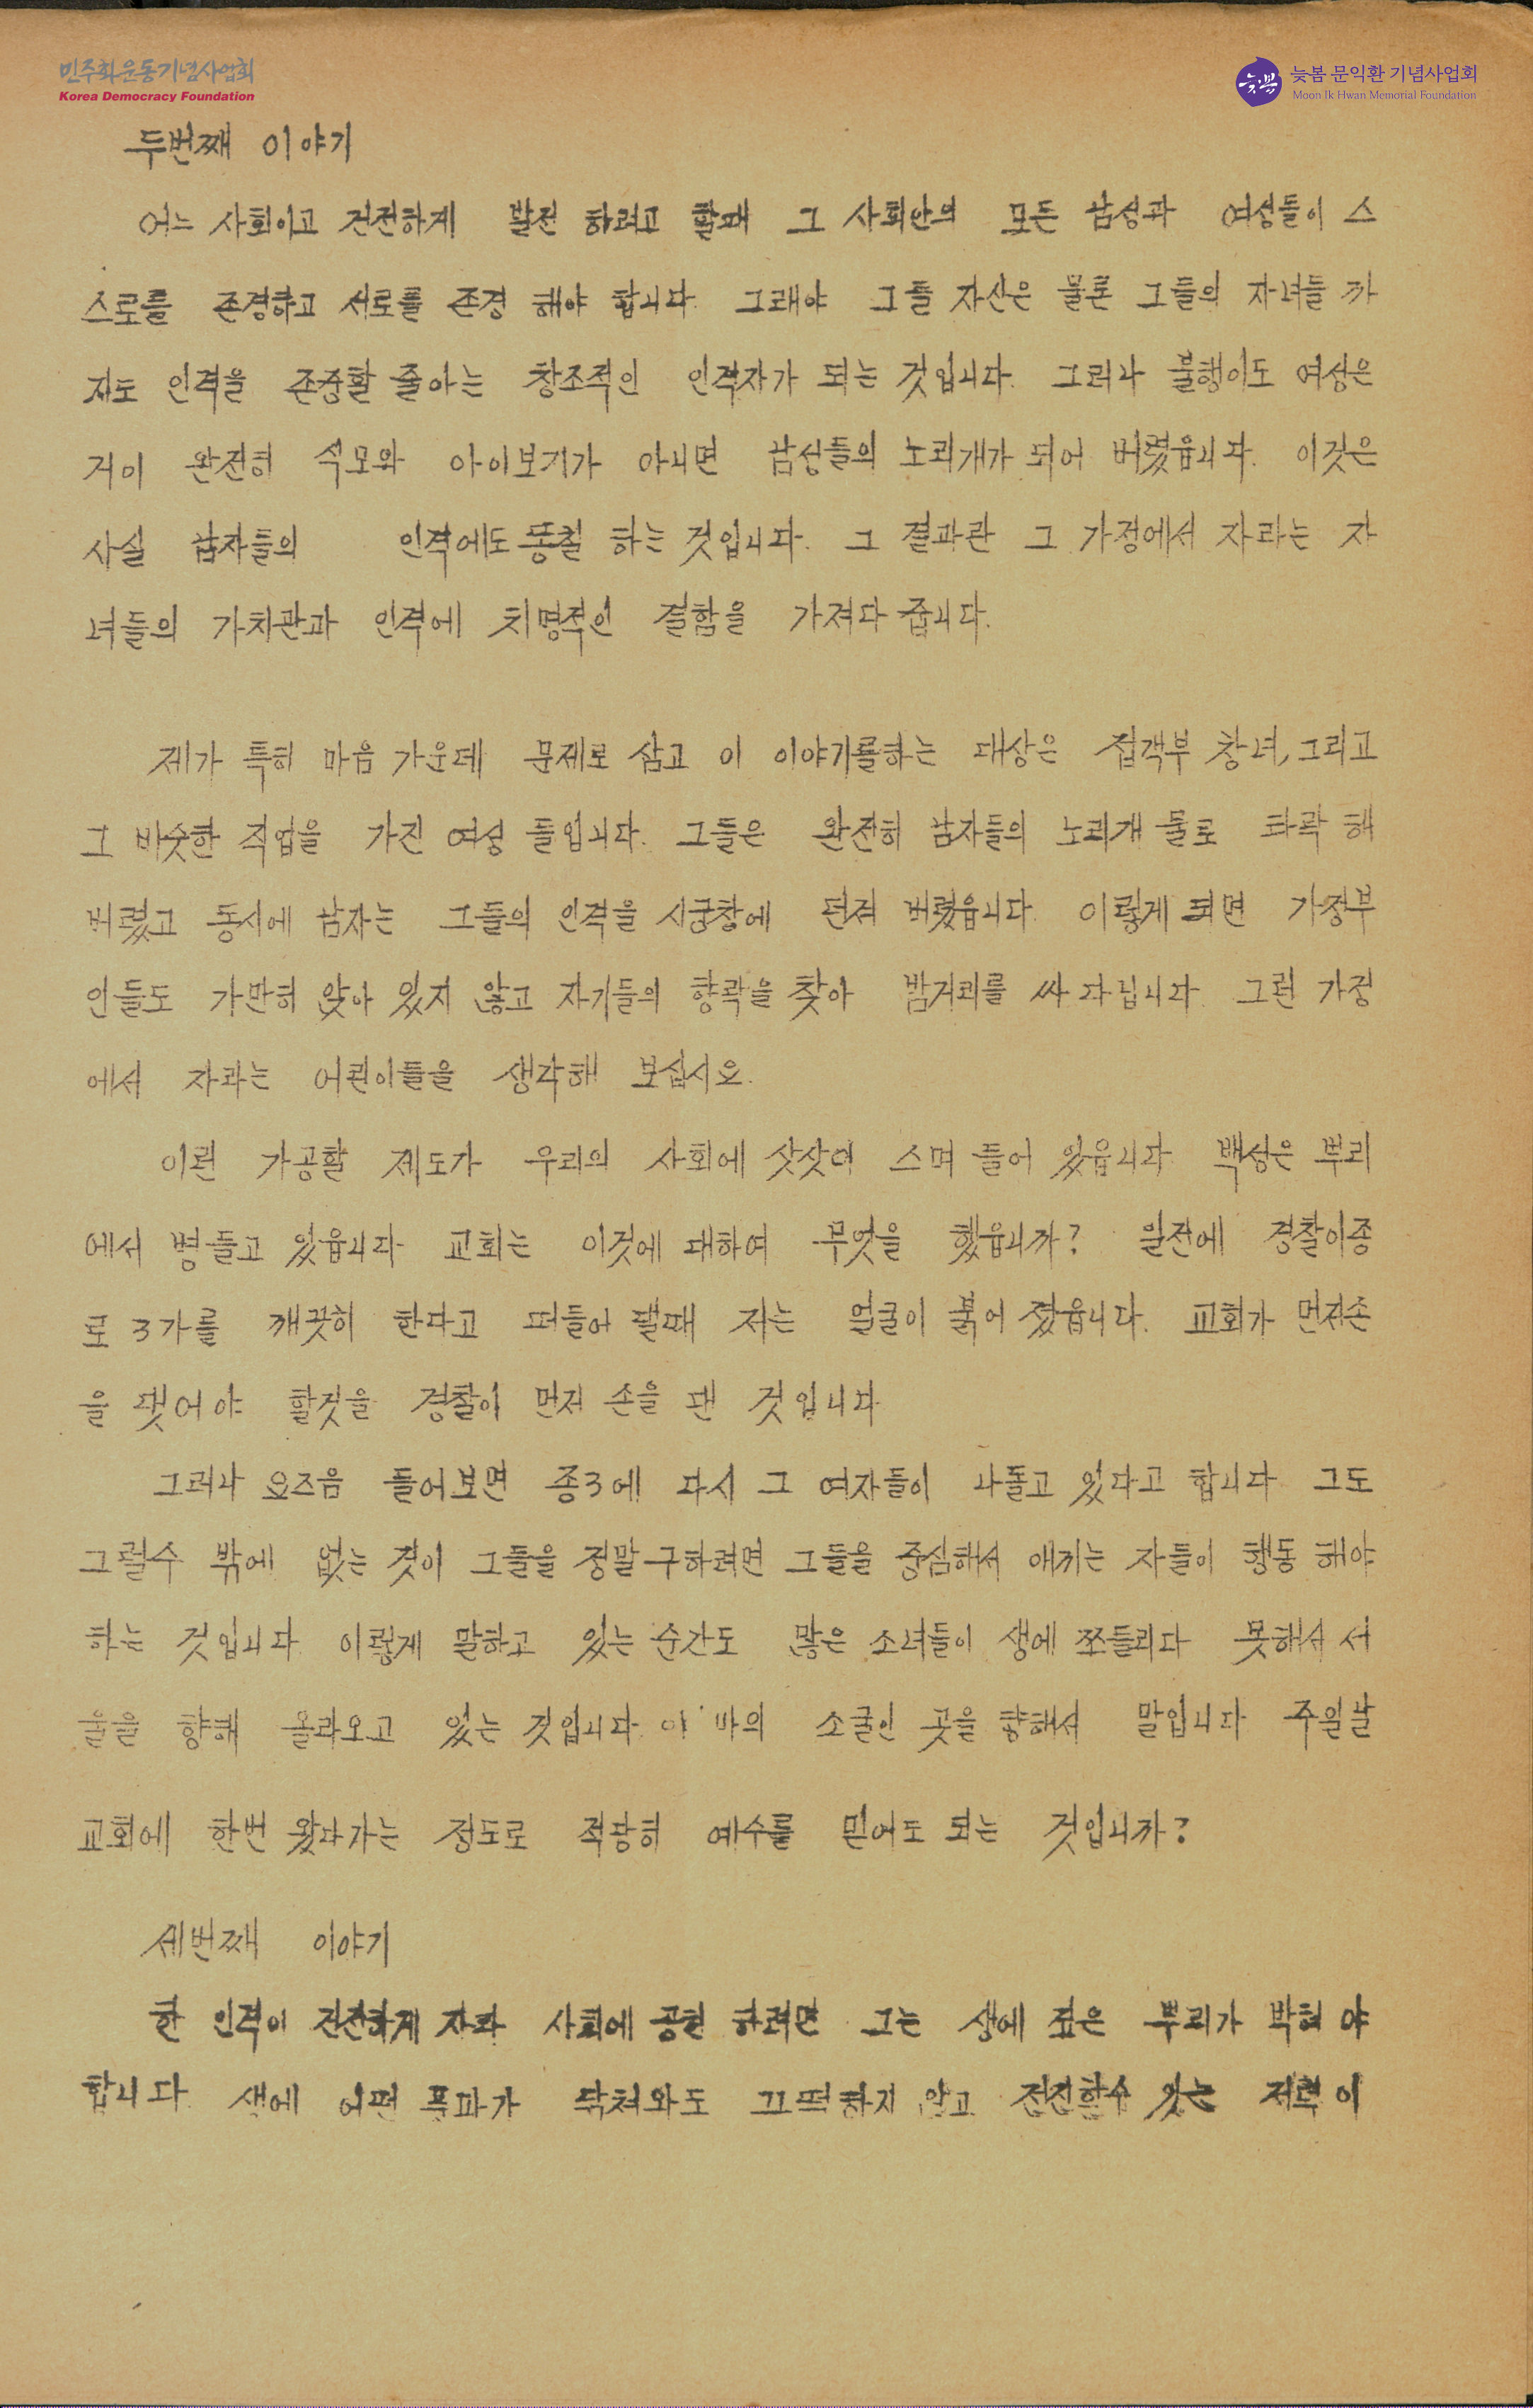 민주화운동기념사업회
Korea Democracy Foundation
늦봄 문익환 기념사업회
Moon Ik Hwan Memorial Foundation
두번째 이야기
어느 사회이고 건전하게 발전 하려고 할때 그 사회안의 모든 남성과 여성들이 스
스로를 존경하고 서로를 존경 해야 합니다. 그래야 그들 자신은 물론 그들의 자녀들 까
지도 인격을 존중할 줄아는 창조적인 인격자가 되는 것입니다. 그러나 불행이도 여성은
거이 완전히 식모와 아이보기가 아니면 남성들의 노리개가 되어 버렸읍니다. 이것은
사실 남자들의 인격에도 똥칠 하는 것입니다. 그 결과관 그 가정에서 자라는 자
녀들의 가치관과 인격에 치명적인 결함을 가져다 줍니다.
제가 특히 마음 가운데 문제로 삼고 이 이야기를하는 대상은 접객부 창녀, 그리고
그 비슷한 직업을 가진 여성 들입니다. 그들은 완전히 남자들의 노리개 물로 타락 해
버렸고 동시에 남자는 그들의 인격을 시궁창에 던져 버렸읍니다. 이렇게 되면 가정부
인들도 가만히 앉아 있지 않고 자기들의 향락을 찾아 밤거리를 싸 다닙니다. 그런 가정
에서 자라는 어린이들을 생각해 보십시요.
이런 가공할 제도가 우리의 사회에 샅샅이 스며 들어 있읍니다 백성은 뿌리
에서 병들고 있읍니다 교회는 이것에 대하여 무엇을 했읍니까? 일전에 경찰이종
로 3가를 깨끗히 한다고 떠들어 댈때 저는 얼굴이 붉어 졌읍니다. 교회가 먼저손
을 댓어야 할것을 경찰이 먼저 손을 댄 것입니다
그러나 요즈음 들어보면 종3에 다시 그 여자들이 나돌고 있다고 합니다 그도
그럴수 밖에 없는 것이 그들을 정말 구하려면 그들을 중심해서 애끼는 자들이 행동 해야
하는 것입니다 이렇게 말하고 있는 순간도 많은 소녀들이 생에 쪼들리다 못해서 서
울을 향해 올라오고 있는 것입니다 소굴인 곳을 향해서 말입니다 주일날
교회에 한번 왔다가는 정도로 적당히 예수를 믿어도 되는 것입니까?
세번째 이야기
한 인격이 건전하게 자라 사회에 공헌 하려면 그는 생에 깊은 뿌리가 박혀 야
합니다 생에 어떤 풍파가 닥쳐와도 끄떡하지 않고 전진할수 있는 저력이